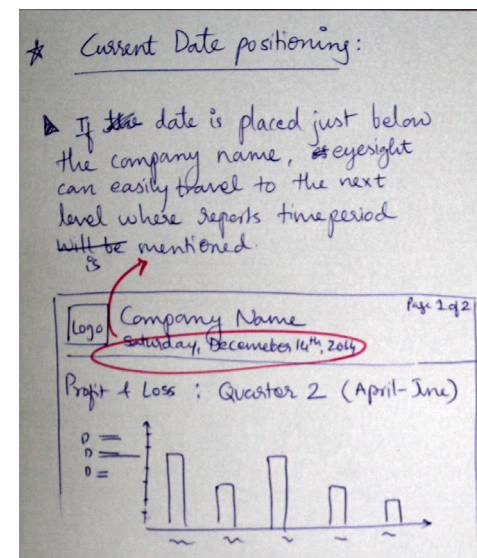 Current Date positioning:
If the date is placed just below
the company name, eyesight
can easily travel to the next
level where reports timeperiod
will be mentioned.
is
Page 1 of 2
Logo Company Name
Saturday, Decemeber 14th, 2014
Profit & Loss : Quarter 2 (April-June)